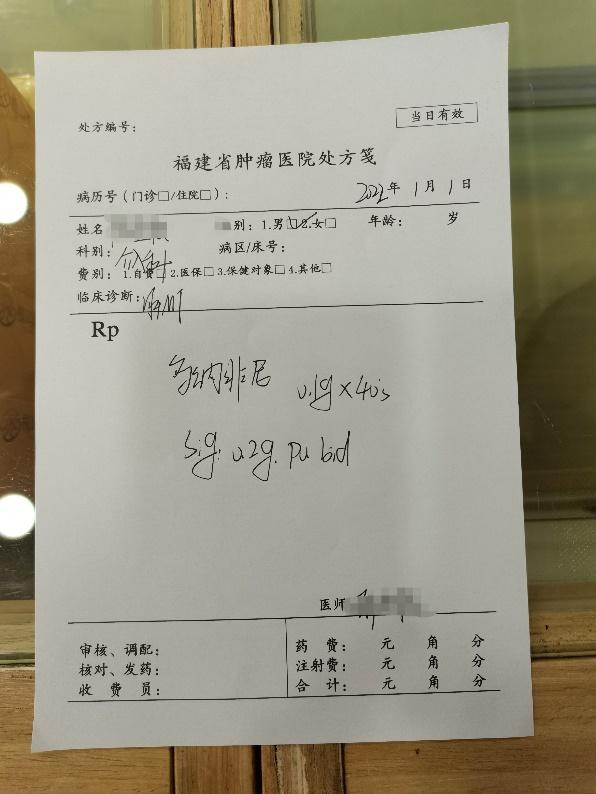 处方编号:
当日有效
福建省肿瘤医院处方笺
病历号(门诊□/住院□):
2022年 1月 1日
姓名 别: 1.男□ 2.女□ 年龄: 岁
科别: 介入科 病区/床号:
费别: 1.自费□ 2.医保□ 3.保健对象□ 4.其他□
临床诊断: 肝MT
Rp
多纳非尼 0.1g×40s
Sig. 0.2g. po bid
医师
审核、调配:
核对、发药:
收 费 员:
药 费: 元 角 分
注射费: 元 角 分
合 计: 元 角 分